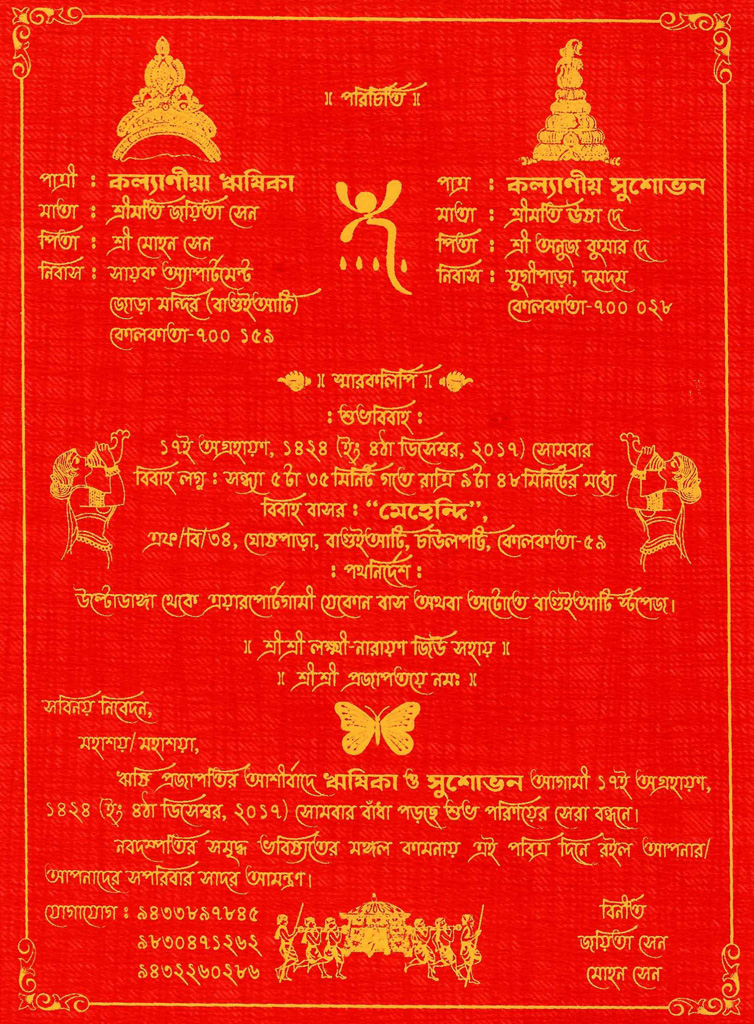 ॥ পরিচিতি ॥
পাত্রী : কল্যাণীয়া ঋষিকা
মাতা : শ্রীমতি জয়িতা সেন
পিতা : শ্রী মোহন সেন
নিবাস : সায়ক অ্যাপার্টমেন্ট
জোড়া মন্দির (বাগুইআটি)
কোলকাতা-৭০০ ১৫৯
পাত্র : কল্যাণীয় সুশোভন
মাতা : শ্রীমতি উষা দে
পিতা : শ্রী অনুজ কুমার দে
নিবাস : যুগীপাড়া, দমদম
কোলকাতা-৭০০ ০২৮
॥ স্মারকলিপি ॥
: শুভবিবাহ :
১৭ই অগ্রহায়ণ, ১৪২৪ (ইং ৪ঠা ডিসেম্বর, ২০১৭) সোমবার
বিবাহ লগ্ন : সন্ধ্যা ৫টা ৩৫মিনিট গতে রাত্রি ৯টা ৪৮মিনিটের মধ্যে
বিবাহ বাসর : “মেহেন্দি”,
এফ/বি/৩৪, ঘোষপাড়া, বাগুইআটি, চাউলপট্টি, কোলকাতা-৫৯
: পথনির্দেশ :
উল্টোডাঙ্গা থেকে এয়ারপোর্টগামী যেকোন বাস অথবা অটোতে বাগুইআটি স্টপেজ।
॥ শ্রীশ্রী লক্ষ্মী-নারায়ণ জিউ সহায় ॥
॥ শ্রীশ্রী প্রজাপতয়ে নমঃ ॥
সবিনয় নিবেদন,
মহাশয়/মহাশয়া,
ঋষি প্রজাপতির আশীর্বাদে ঋষিকা ও সুশোভন আগামী ১৭ই অগ্রহায়ণ,
১৪২৪ (ইং ৪ঠা ডিসেম্বর, ২০১৭) সোমবার বাঁধা পড়ছে শুভ পরিণয়ের সেরা বন্ধনে।
নবদম্পতির সমৃদ্ধ ভবিষ্যতের মঙ্গল কামনায় এই পবিত্র দিনে রইল আপনার/
আপনাদের সপরিবার সাদর আমন্ত্রণ।
যোগাযোগ : ৯৪৩৩৮৯৭৮৪৫
৯৮৩০৪৭১২৬২
৯৪৩২২৬০২৮৬
বিনীত
জয়িতা সেন
মোহন সেন